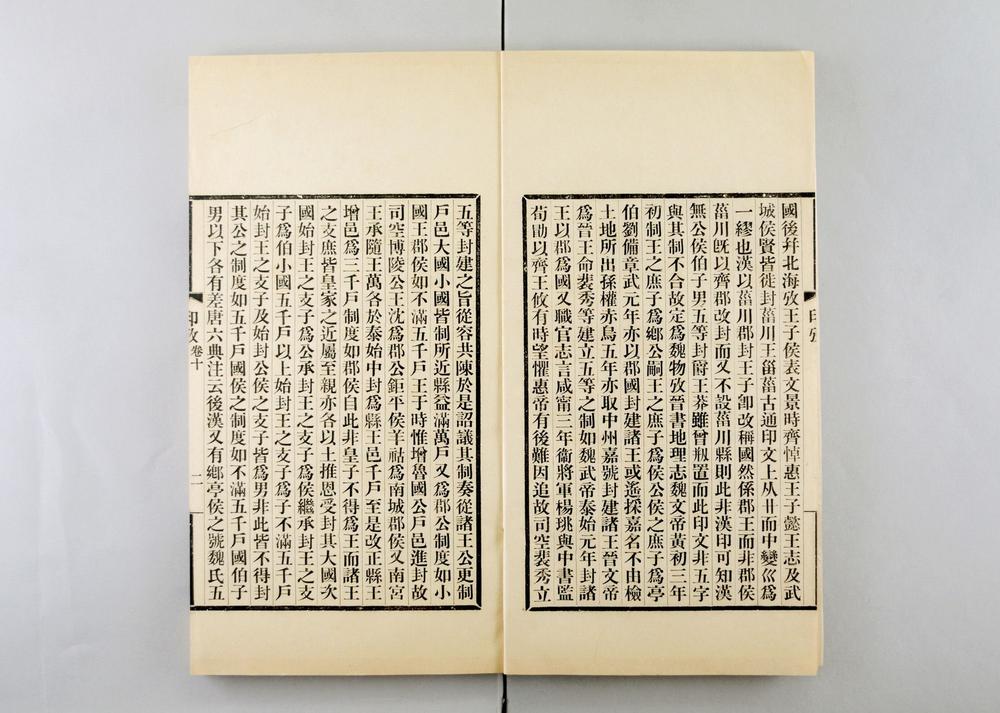 國後幷北海攷王子侯表文景時齊悼惠王子懿王志及武
城侯賢皆徙封菑川王甾菑古通印文上从艸而中變巛爲
一繆也漢以菑川郡封王子卽改稱國然係郡王而非郡侯
菑川旣以齊郡改封而又不設菑川縣則此非漢印可知漢
無公侯伯子男五等封爵王莽雖曾剏置而此印文非五字
與其制不合故定爲魏物攷晉書地理志魏文帝黃初三年
初制王之庶子爲鄉公嗣王之庶子爲侯公侯之庶子爲亭
伯劉備章武元年亦以郡國封建諸王或遙採嘉名不由檢
土地所出孫權赤烏五年亦取中州嘉號封建諸王晉文帝
爲晉王命裴秀等建立五等之制如魏武帝泰始元年封諸
王以郡爲國又職官志言咸甯三年衞將軍楊珧與中書監
荀勖以齊王攸有時望懼惠帝有後難因追故司空裴秀立
五等封建之旨從容共陳於是詔議其制奏從諸王公更制
戶邑大國小國皆制所近縣益滿萬戶又爲郡公制度如小
國王郡侯如不滿五千戶王于時惟增魯國公戶邑進封故
司空博陵公王沈爲郡公鉅平侯羊祜爲南城郡侯又南宮
王承隨王萬各於泰始中封爲縣王邑千戶至是改正縣王
增邑爲三千戶制度如郡侯自此非皇子不得爲王而諸王
之支庶皆皇家之近屬至親亦各以土推恩受封其大國次
國始封王之支子爲公承封王之支子爲侯繼承封王之支
子爲伯小國五千戶以上始封王之支子爲子不滿五千戶
始封王之支子及始封公侯之支子皆爲男非此皆不得封
其公之制度如五千戶國侯之制度如不滿五千戶國伯子
男以下各有差唐六典注云後漢又有鄉亭侯之號魏氏五
印攷 卷十 二